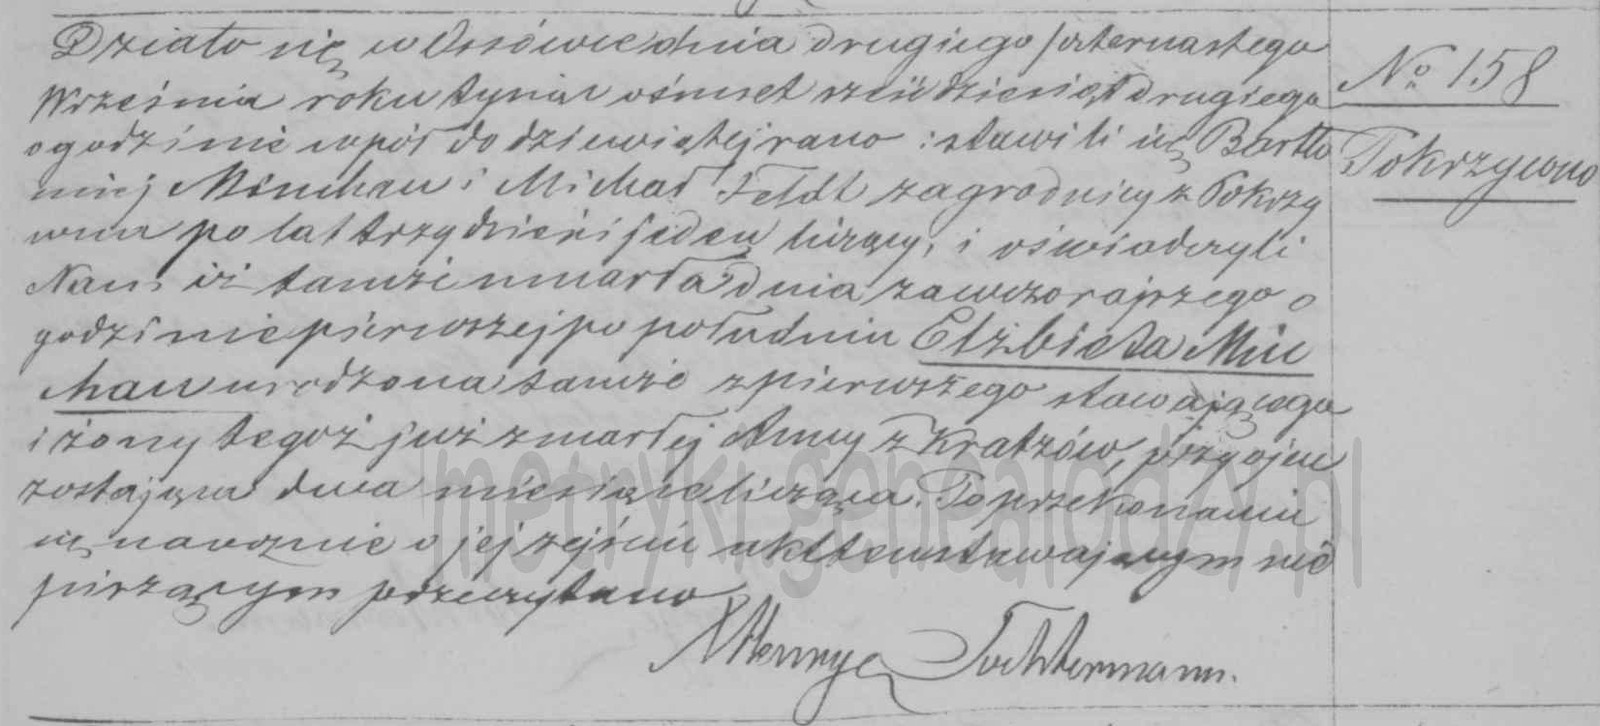 Działo się w Ossówce dnia drugiego / czternastego
Września roku tysiąc ośmset sześćdziesiąt drugiego
o godzinie wpół do dziewiątej rano : stawili się Bartło
miej Minchau i Michał Feldt zagrodnicy z Pokrzy
wna po lat trzydzieści jeden liczący, i oświadczyli
Nam iż tamże umarła dnia zawczorajszego o
godzinie pierwszej po południu Elżbieta Min
chau urodzona tamże z pierwszego stawającego
i żony tegoż już zmarłej Anny z Kratzów, przy ojcu
zostająca dwa miesiące licząca. Po przekonaniu
się naocznie o jej zejściu akt ten stawającym nie
piszącym przeczytano
Tochtermann.
No 158
Pokrzywno
metryki.genealodzy.pl